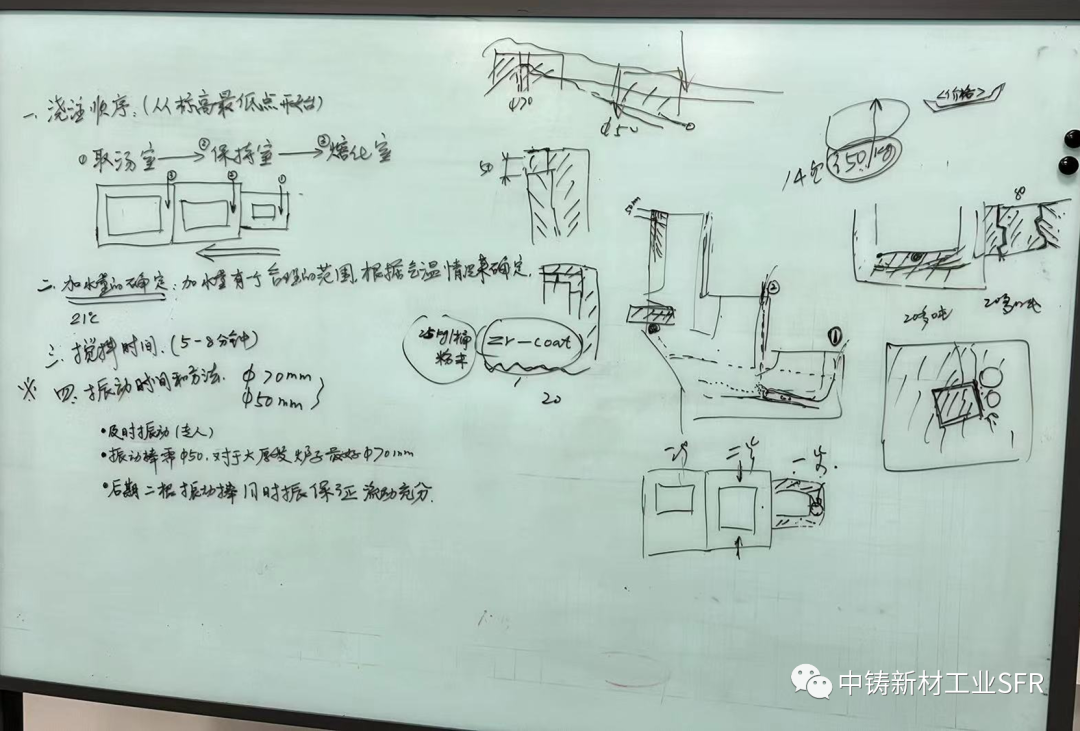 一、浇注顺序:(从标高最低点开始)
①取汤室→②保持室→③熔化室
③ ② ①
二、加水量的确定:加水量有个合理的范围,根据气温情况来确定.
21℃
三、搅拌时间.(5-8分钟)
※ 四、振动时间和方法. φ70mm
φ50mm
•及时振动(专人)
•振动棒需φ50.对于大底炉子最好φ70mm
•后期二根振动棒同时振保证流动充分.
φ70
φ50
50
25kg/桶
粉末
Zr-coat
20
②
①
二号
一号
<价格>
14包
350kg
20多吨
20多吨
中铸新材工业SFR